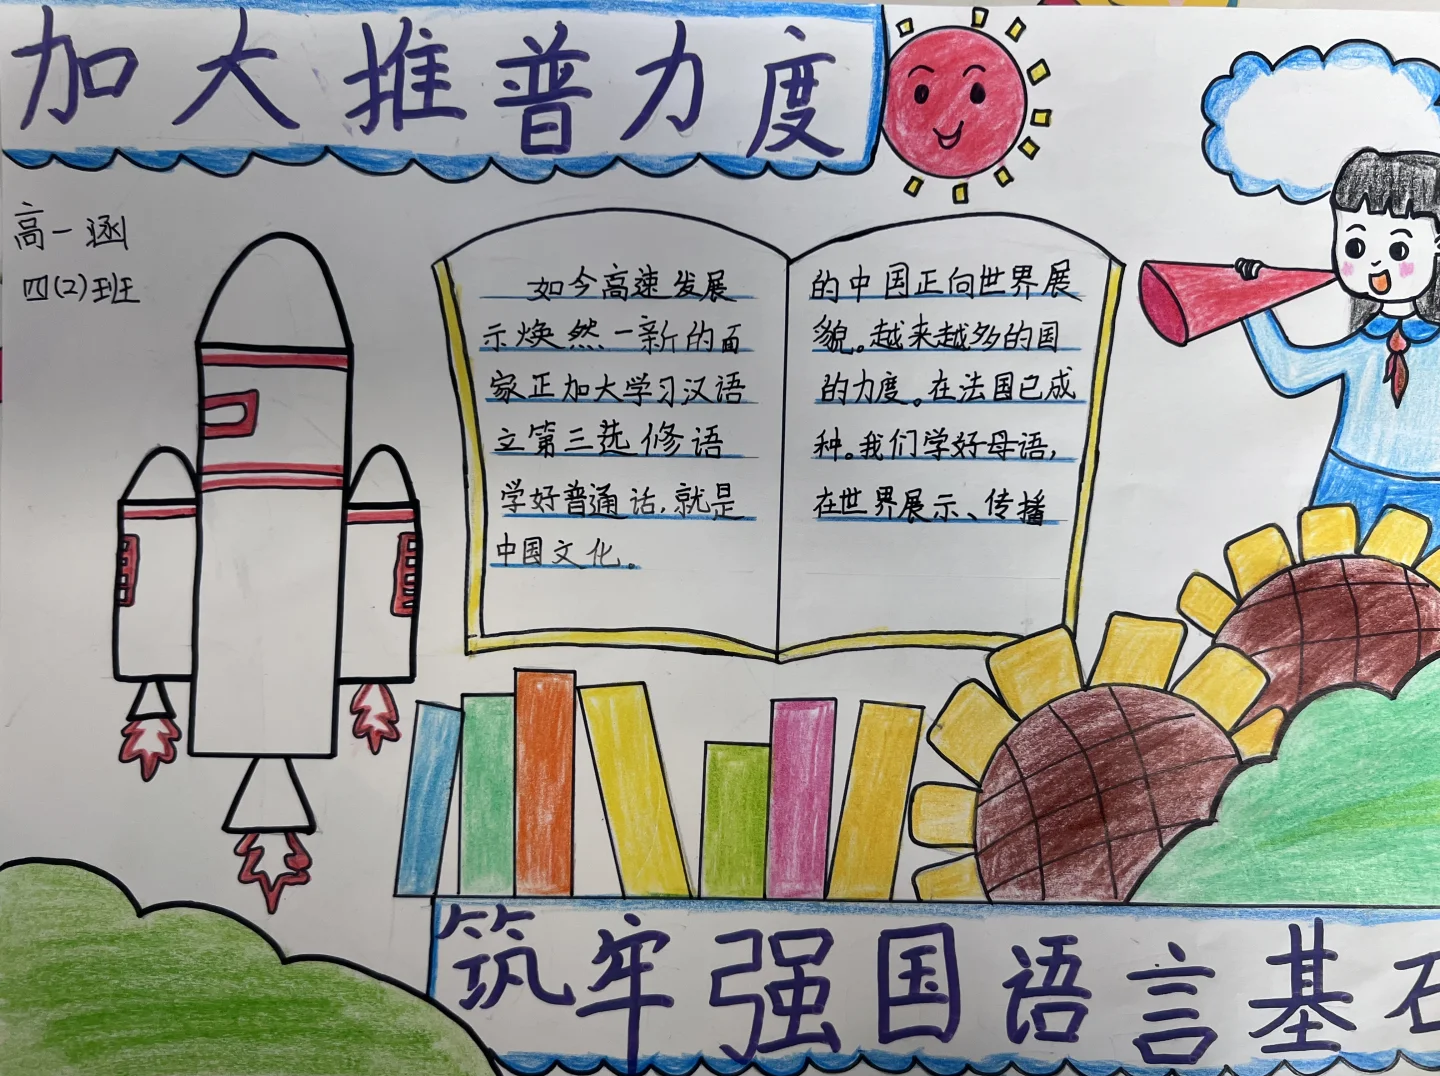 加大推普力度
高一涵
四(2)班
如今高速发展的中国正向世界展
示焕然一新的面貌。越来越多的国
家正加大学习汉语的力度。在法国已成
文第三选修语种。我们学好母语,
学好普通话,就是在世界展示、传播
中国文化。
筑牢强国语言基石